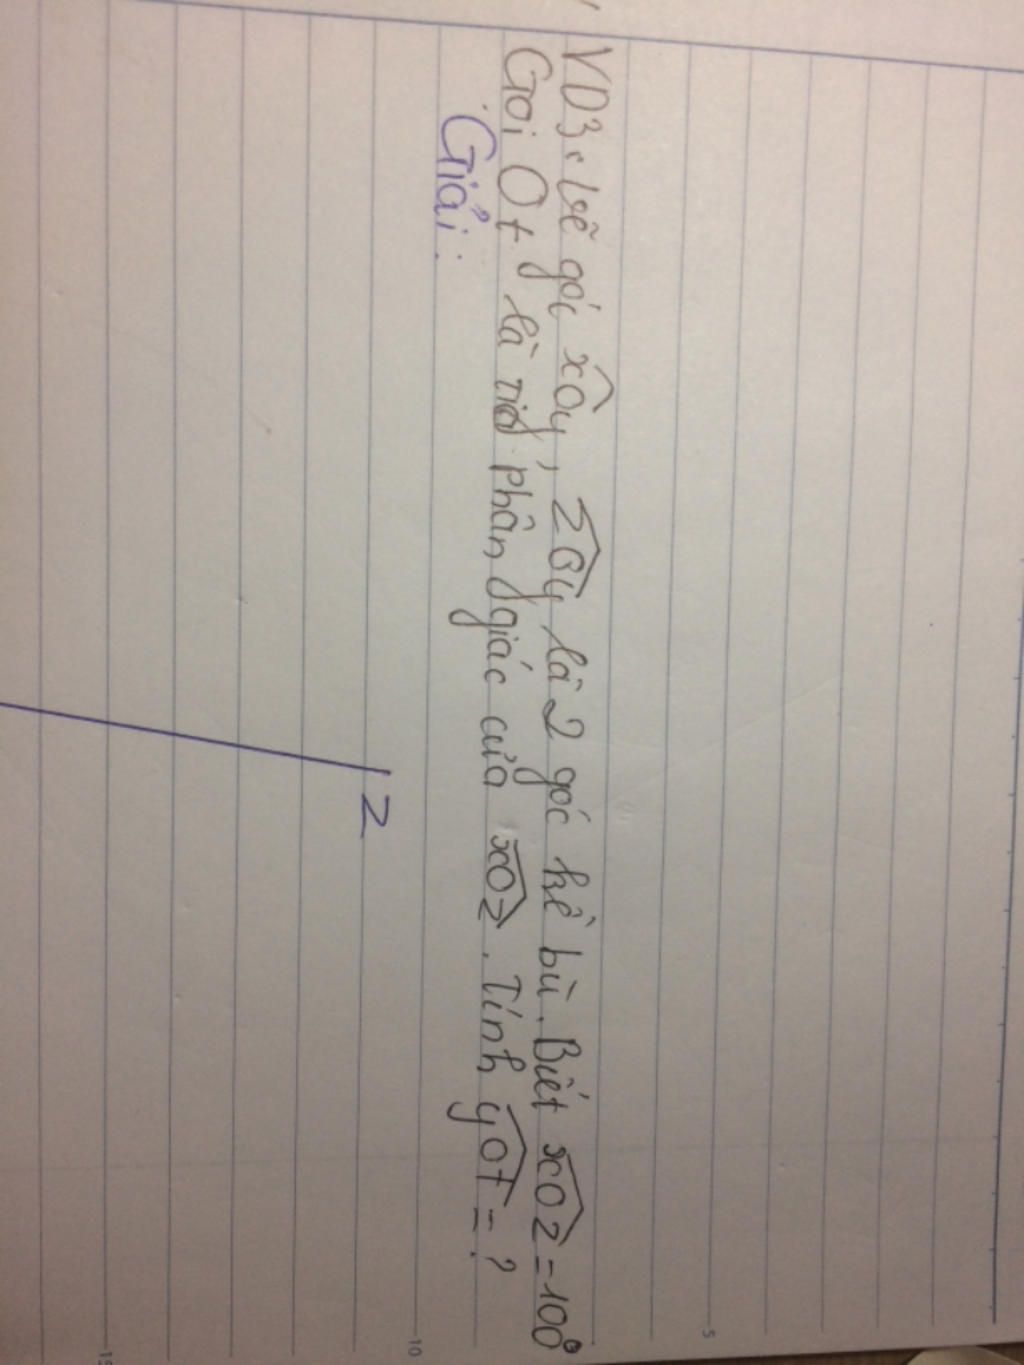 VD3: Vẽ góc xOy, zOy là 2 góc kề bù. Biết xOz = 100°
Gọi Ot là tia phân giác của xOz. Tính yOt = ?
Giải:
z
5
10
15